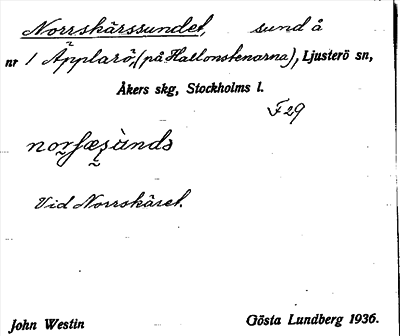 Norrskärssundet, sund å
nr 1 Äpplarö, (på Hallonstenarna), Ljusterö sn,
Åkers skg, Stockholms l.
F29
Vid Norrskäret.
John Westin Gösta Lundberg 1936.